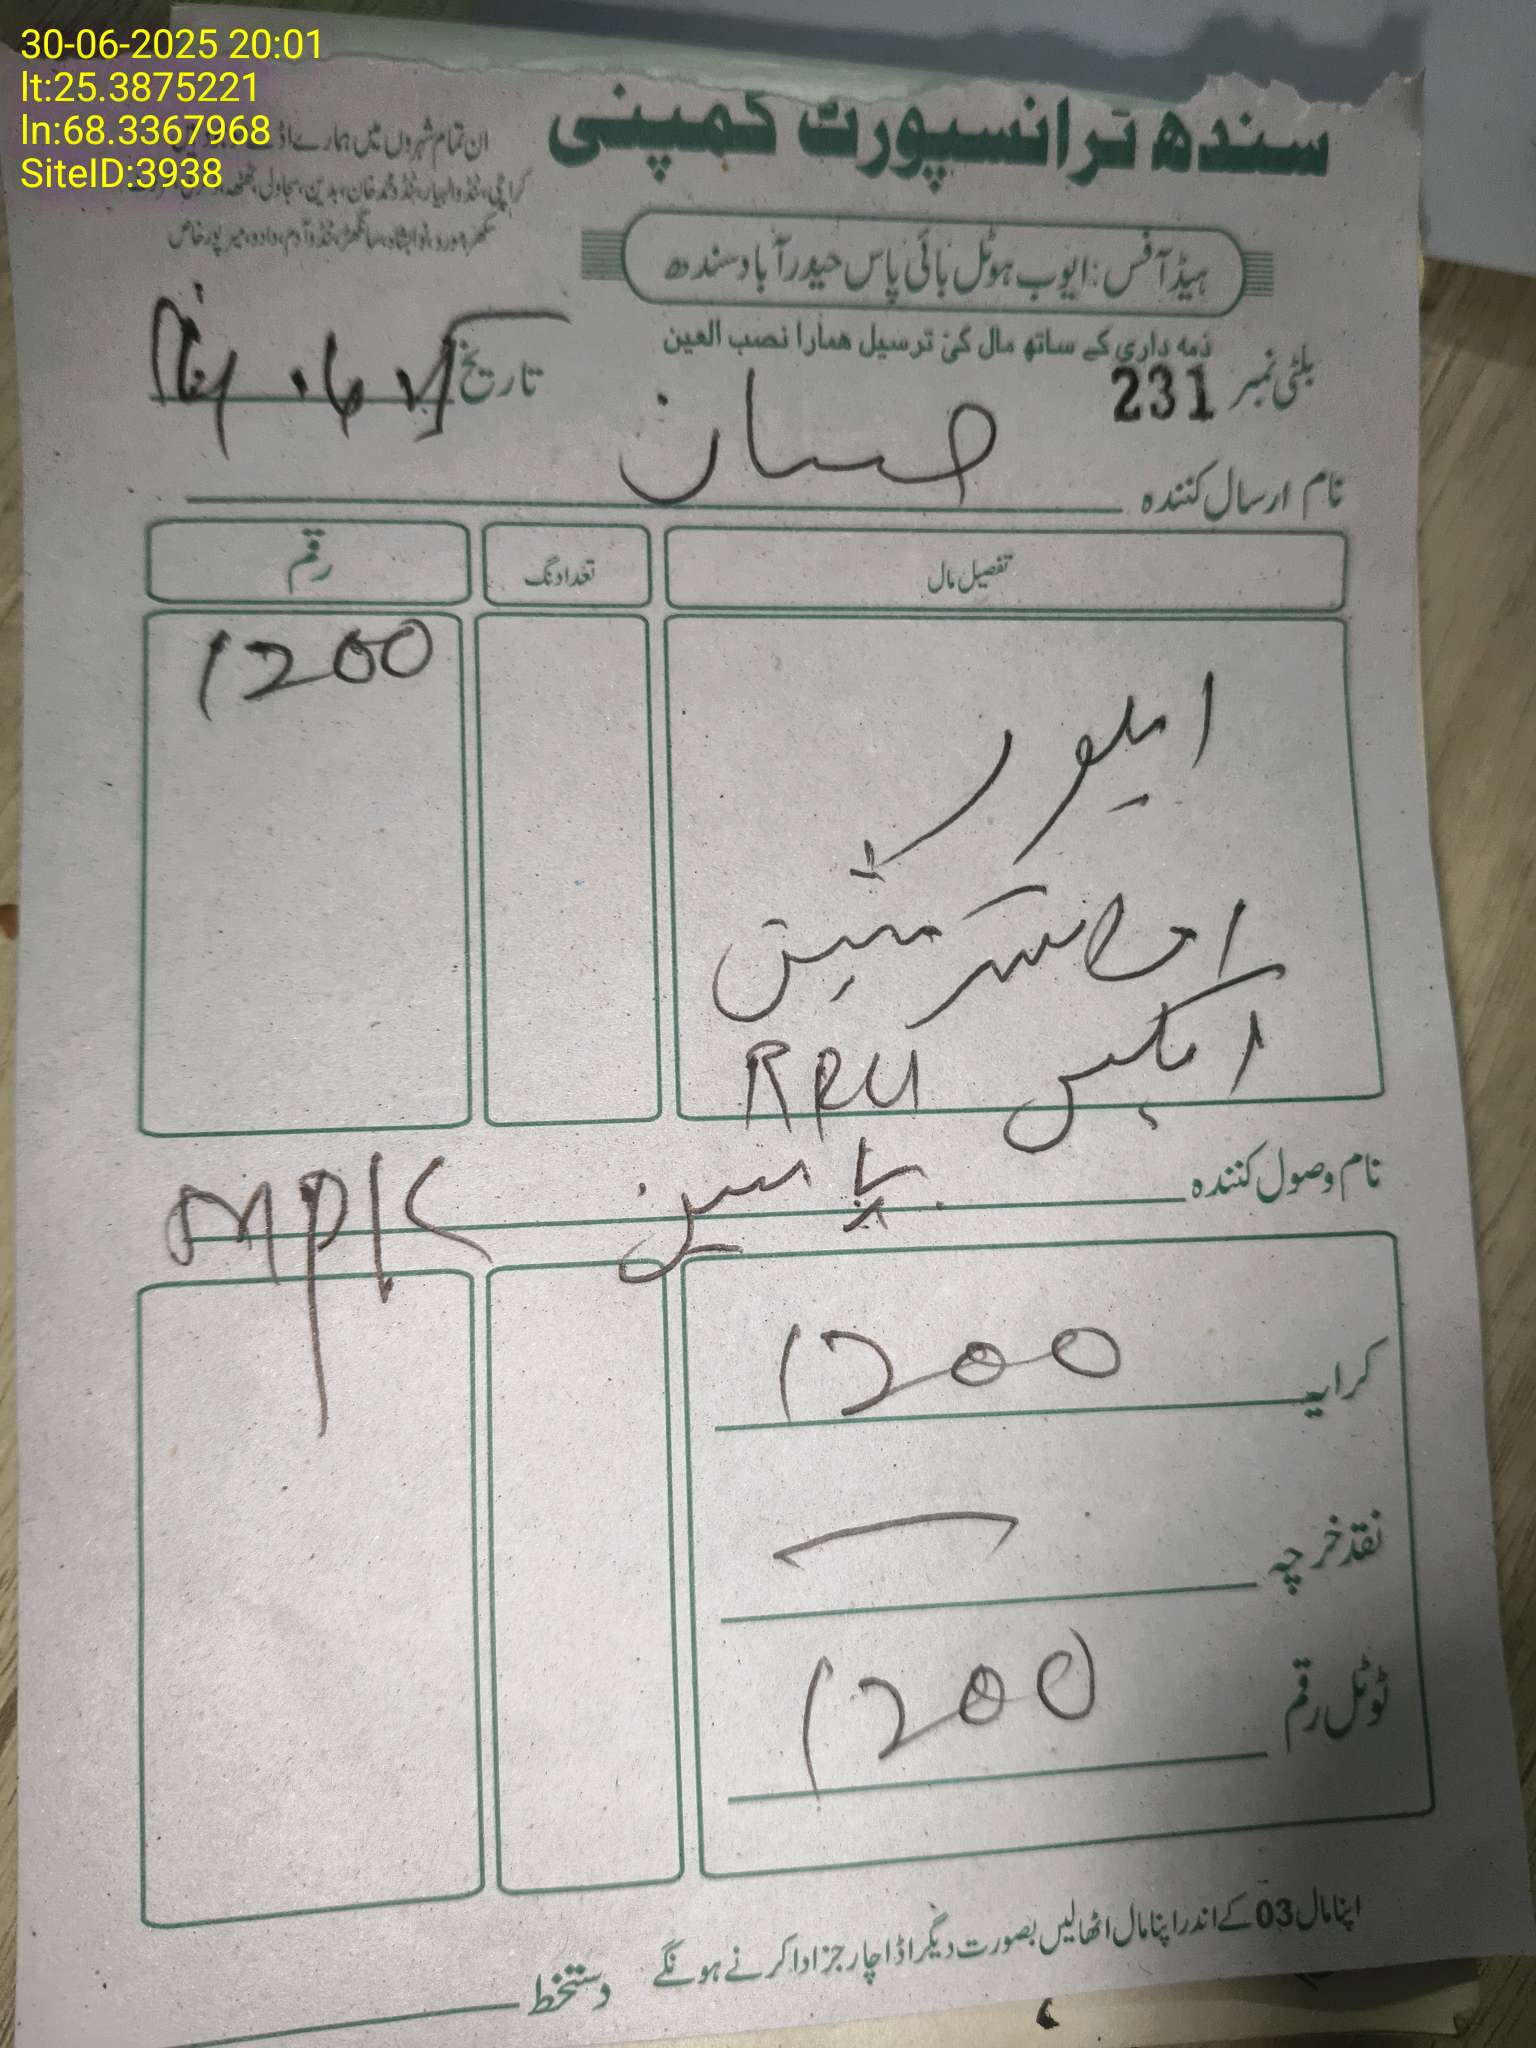 30-06-2025 20:01
lt:25.3875221
ln:68.3367968
SiteID:3938
سندھ ٹرانسپورٹ کمپنی
ان تمام شہروں میں ہمارے اڈے
کراچی، ٹنڈوالہیار، ٹنڈو محمد خان، بدین، سجاول، ٹھٹھہ
سکھر، مورو، نوابشاہ، سانگھڑ، ٹنڈوآدم، دادو، میرپورخاص
ہیڈ آفس: ایوب ہوٹل بائی پاس حیدرآباد سندھ
ذمہ داری کے ساتھ مال کی ترسیل ہمارا نصب العین
بلٹی نمبر 231
تاریخ
نام ارسال کنندہ حسان
تفصیل مال
تعداد نگ
رقم
1200
RRU
نام وصول کنندہ یاسین MPK
کرایہ 1200
نقد خرچہ
ٹوٹل رقم 1200
اپنا مال 03 کے اندر اپنا مال اٹھالیں بصورت دیگر اڈا چارجز ادا کرنے ہونگے
دستخط